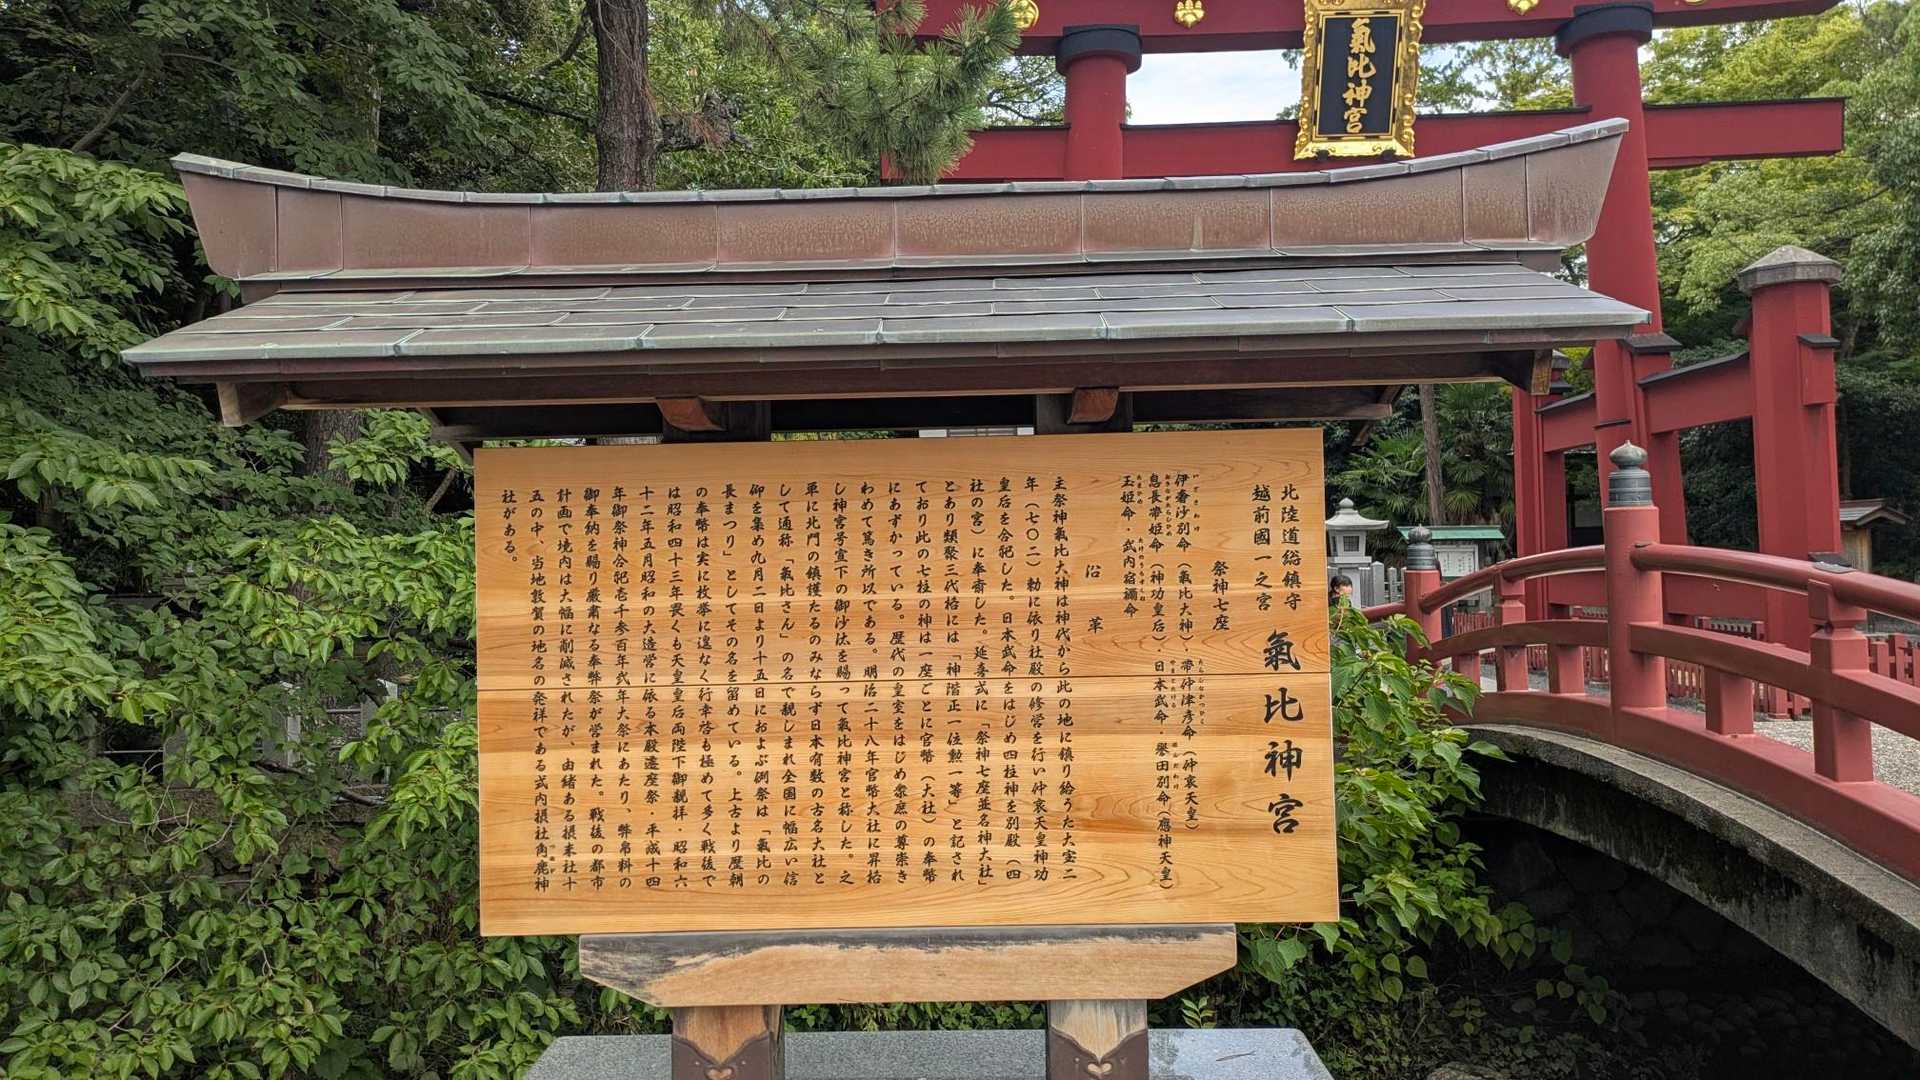 氣比神宮
北陸道総鎮守
越前國一之宮
氣比神宮
祭神七座
伊奢沙別命（氣比大神）・帯仲津彦命（仲哀天皇）
いざさわけ
たらしなかつひこ
息長帯姫命（神功皇后）・日本武命・誉田別命（應神天皇）
おきながたらしひめ
やまとたける
ほんだわけ
玉姫命・武内宿禰命
たまひめ
たけのうちすくね
沿革
主祭神氣比大神は神代から此の地に鎮り給うた大宝二
年（七〇二）勅に依り社殿の修営を行い仲哀天皇神功
皇后を合祀した。日本武命をはじめ四柱神を別殿（四
社の宮）に奉斎した。延喜式に「祭神七座並名神大社」
とあり類聚三代格には「神階正一位勲一等」と記され
ており此の七柱の神は一座ごとに官幣（大社）の奉幣
にあずかっている。歴代の皇室をはじめ衆庶の尊崇き
わめて篤き所以である。明治二十八年官幣大社に昇格
し神宮号宣下の御沙汰を賜って氣比神宮と称した。之
単に北門の鎮護たるのみならず日本有数の古名大社と
して通称「氣比さん」の名で親しまれ全国に幅広い信
仰を集め九月二日より十五日におよぶ例祭は「氣比の
長まつり」としてその名を留めている。上古より歴朝
の奉幣は実に枚挙に遑なく行幸啓も極めて多く戦後で
は昭和四十三年畏くも天皇皇后両陛下御親拝・昭和六
十二年五月昭和の大造営に依る本殿遷座祭・平成十四
年御祭神合祀壱千参百年式年大祭にあたり、幣帛料の
御奉納を賜り厳粛なる奉幣祭が営まれた。戦後の都市
計画で境内は大幅に削減されたが、由緒ある摂末社十
五の中、当地敦賀の地名の発祥である式内摂社角鹿神
つぬが
社がある。